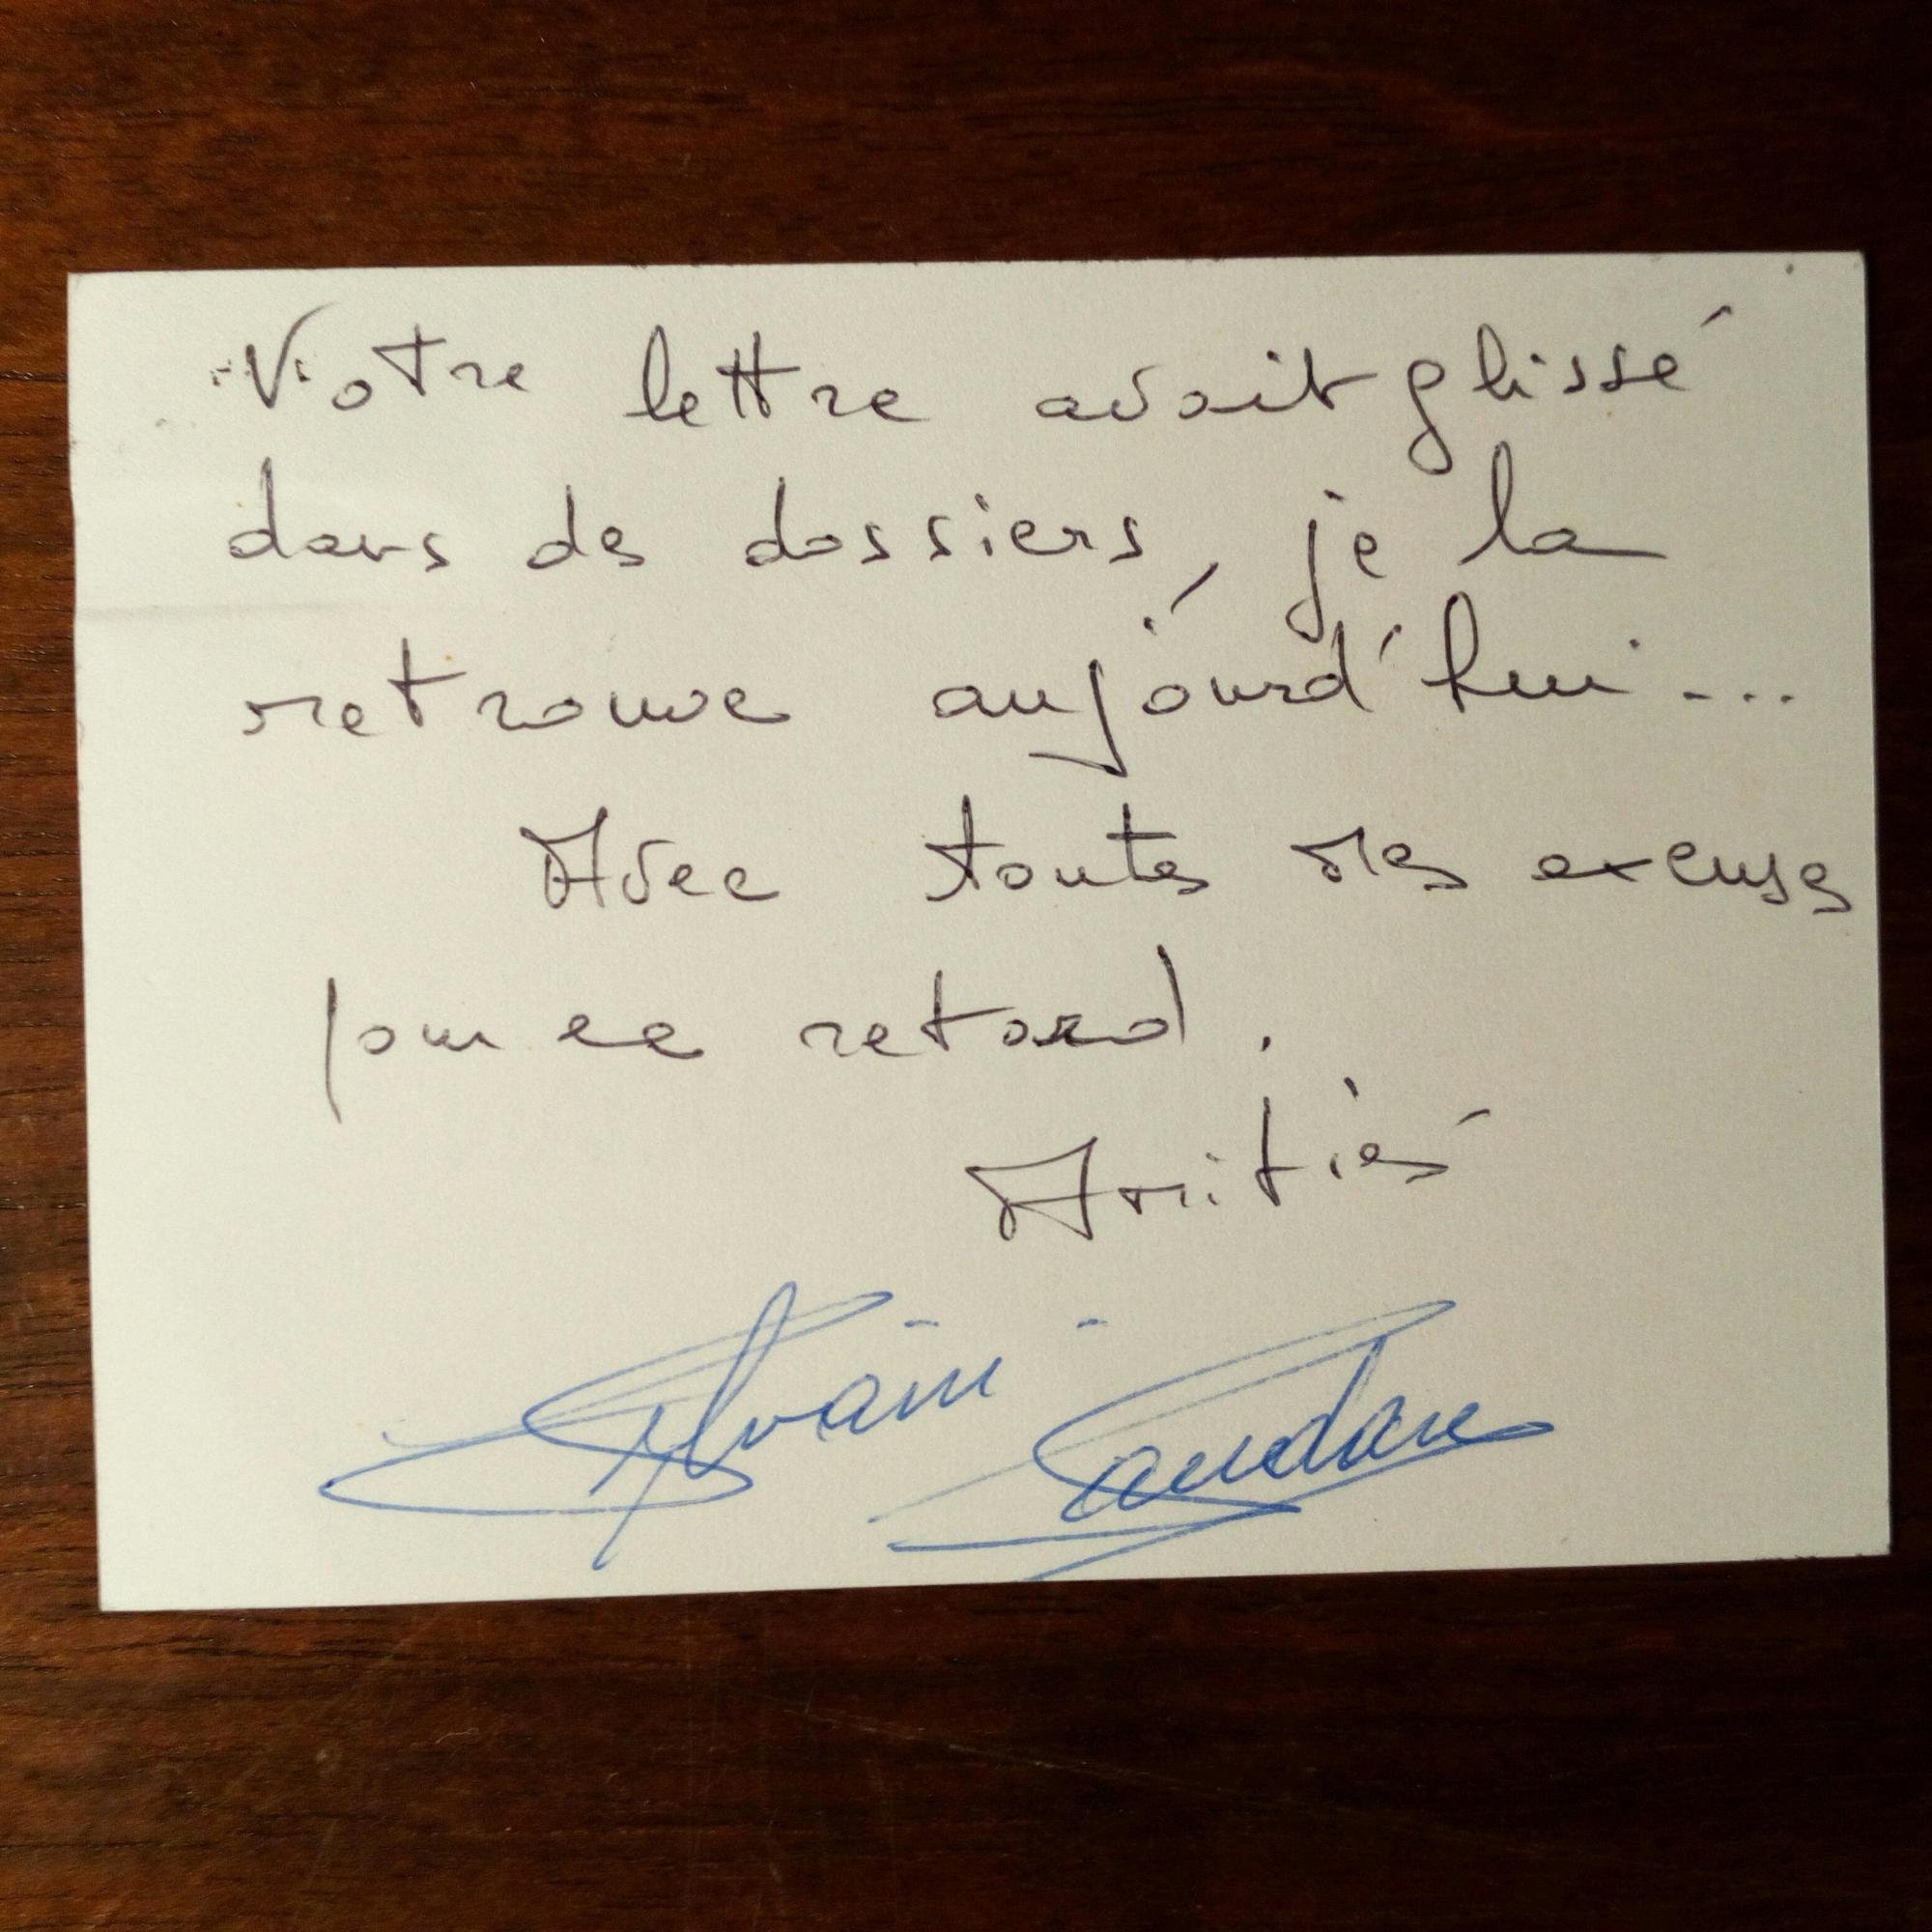 Votre lettre avait glissé
dans des dossiers, je la
retrouve aujourd'hui....
Avec toutes mes excuses
pour ce retard.
Amitiés
Sylvain Saudan